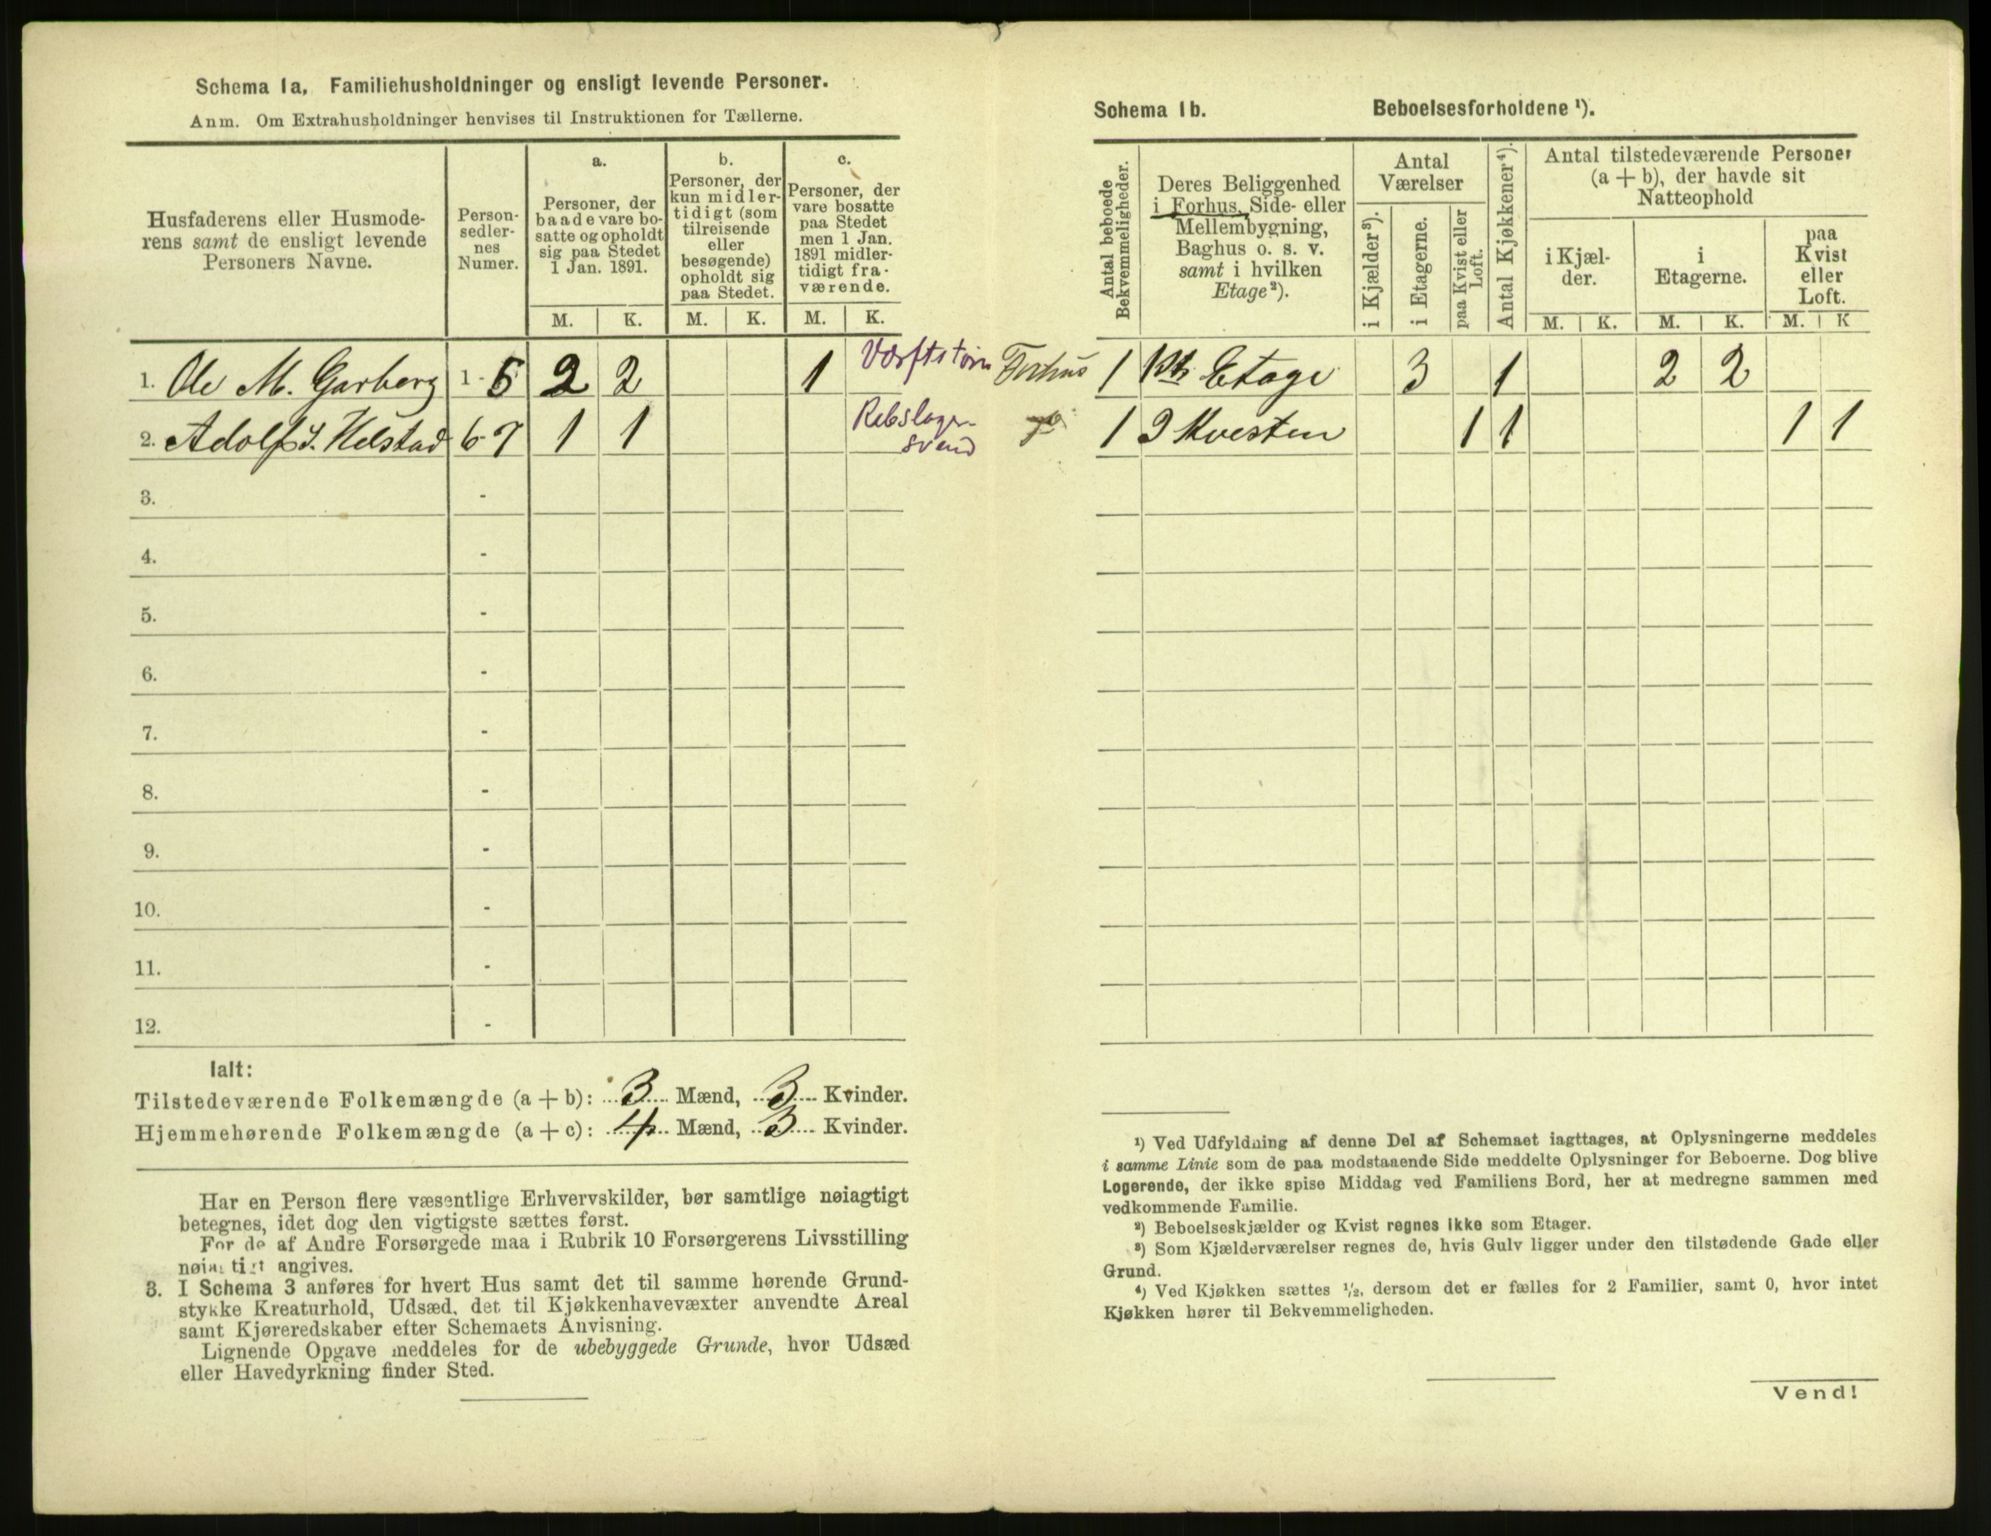 Schema 1a. Familiehusholdninger og ensligt levende Personer.
Anm. Om Extrahusholdninger henvises til Instruktionen for Tællerne.
Husfaderens eller Husmode-
rens samt de ensligt levende
Personers Navne.
Person-
sedler-
nes
Numer.
a.
Personer, der
baade vare bo-
satte og opholdt
sig paa Stedet
1 Jan. 1891.
b.
Personer, der
kun midler-
tidigt (som
tilreisende
eller
besøgende)
opholdt sig
paa Stedet.
c.
Personer, der
vare bosatte
paa Stedet
men 1 Jan.
1891 midler-
tidigt fra-
værende.
M. K. M. K. M. K.
1. Ole M. Garberg 1-5 2 2 1
2. Adolf J. Helstad 6-7 1 1 Rebslager-
svend
3. -
4. -
5. -
6. -
7. -
8. -
9. -
10. -
11. -
12. -
Ialt:
Tilstedeværende Folkemængde (a + b): 3 Mænd, 3 Kvinder.
Hjemmehørende Folkemængde (a + c): 4 Mænd, 3 Kvinder.
Har en Person flere væsentlige Erhvervskilder, bør samtlige nøiagtigt
betegnes, idet dog den vigtigste sættes først.
For de af Andre Forsørgede maa i Rubrik 10 Forsørgerens Livsstilling
nøiagtigt angives.
3. I Schema 3 anføres for hvert Hus samt det til samme hørende Grund-
stykke Kreaturhold, Udsæd, det til Kjøkkenhavevæxter anvendte Areal
samt Kjøreredskaber efter Schemaets Anvisning.
Lignende Opgave meddeles for de ubebyggede Grunde, hvor Udsæd
eller Havedyrkning finder Sted.
Schema 1b. Beboelsesforholdene ¹).
Antal beboede
Bekvemmeligheder.
Deres Beliggenhed
i Forhus, Side- eller
Mellembygning,
Baghus o. s. v.
samt i hvilken
Etage²).
Antal
Værelser
i Kjælder³).
i Etagerne.
paa Kvist eller
Loft.
Antal Kjøkkener⁴).
Antal tilstedeværende Personer
(a + b), der havde sit
Natteophold
i Kjæl-
der.
i
Etagerne.
paa
Kvist
eller
Loft.
M. K. M. K. M. K
Forhus 1 1ste Etage 3 1 2 2
do 1 I Kvisten 1 1 1 1
¹) Ved Udfyldning af denne Del af Schemaet iagttages, at Oplysningerne meddeles
i samme Linie som de paa modstaaende Side meddelte Oplysninger for Beboerne. Dog blive
Logerende, der ikke spise Middag ved Familiens Bord, her at medregne sammen med
vedkommende Familie.
²) Beboelseskjælder og Kvist regnes ikke som Etager.
³) Som Kjælderværelser regnes de, hvis Gulv ligger under den tilstødende Gade eller
Grund.
⁴) Ved Kjøkken sættes ½, dersom det er fælles for 2 Familier, samt 0, hvor intet
Kjøkken hører til Bekvemmeligheden.
Vend!